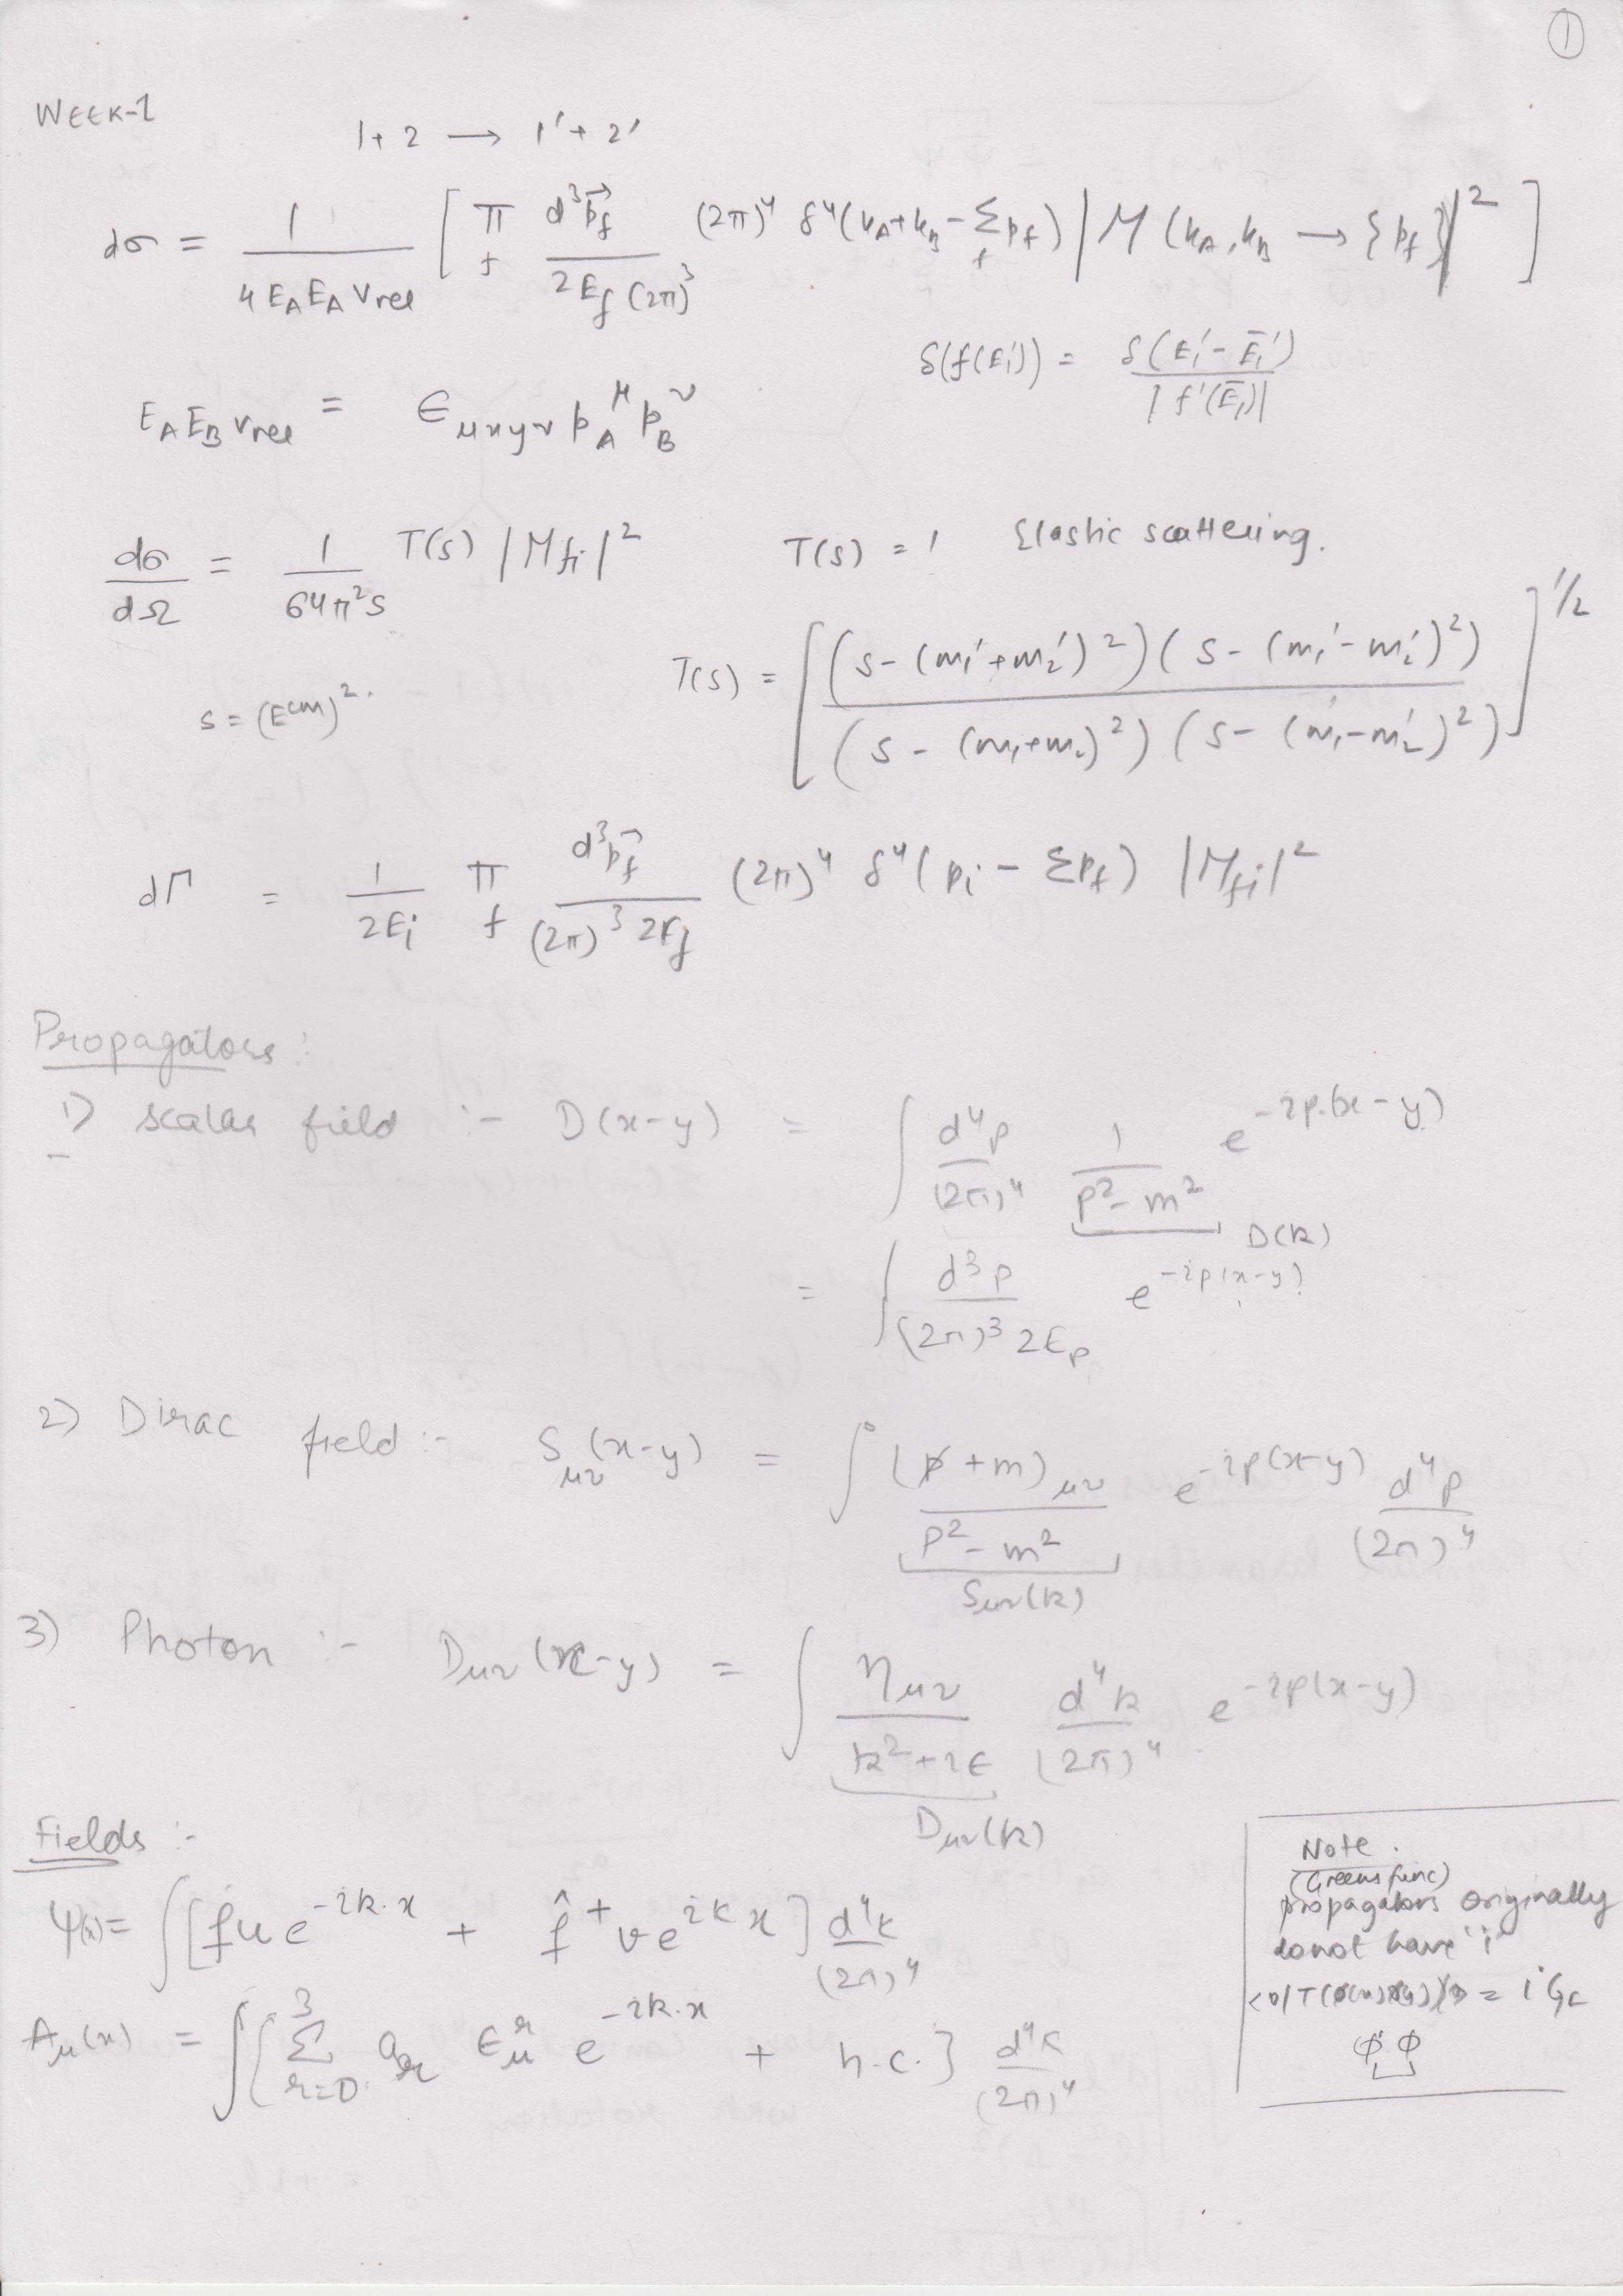 ①
WEEK-1
1+2 ⟶ 1'+2'
dσ = 1/(4 E_A E_A v_rel) [ π_f d³p⃗_f/(2E_f (2π)³) (2π)⁴ δ⁴(k_A+k_B - Σ_f p_f) |M(k_A, k_B → {p_f})|² ]
δ(f(E₁')) = δ(E₁' - Ē₁')/|f'(Ē₁)|
E_A E_B v_rel = ε_{μxyν} p_A^μ p_B^ν
dσ/dΩ = 1/(64π²s) T(s) |M_fi|² T(s) = 1 Elastic scattering.
T(s) = [ (s-(m₁'+m₂')²)(s-(m₁'-m₂')²) / (s-(m₁+m₂)²)(s-(m₁'-m₂')²) ]^{1/2}
s = (E^{cm})².
dΓ = 1/(2E_i) π_f d³p⃗_f/((2π)³ 2E_f) (2π)⁴ δ⁴(p_i - Σp_f) |M_fi|²
Propagators:
1) scalar field :- D(x-y) = ∫ d⁴p/(2π)⁴ 1/(p²-m²) e^{-ip.(x-y)}
D(k)
= ∫ d³p/((2π)³ 2E_p) e^{-ip(x-y)}
2) Dirac field :- S_μν(x-y) = ∫ (p̸+m)_μν/(p²-m²) e^{-ip(x-y)} d⁴p/(2π)⁴
S_μν(k)
3) Photon :- D_μν(x-y) = ∫ η_μν/(k²+iε) d⁴k/(2π)⁴ e^{-ip(x-y)}
D_μν(k)
Fields :-
ψ(x) = ∫[f u e^{-ik.x} + f̂⁺ v e^{ikx}] d⁴k/(2π)⁴
A_μ(x) = ∫{ Σ_{r=0}^{3} a_r ε_μ^r e^{-ik.x} + h.c.} d⁴k/(2π)⁴
Note.
(Greens func)
propagators originally
do not have 'i'
<0|T(φ(x)φ(y))|0> = i G_F
φ φ